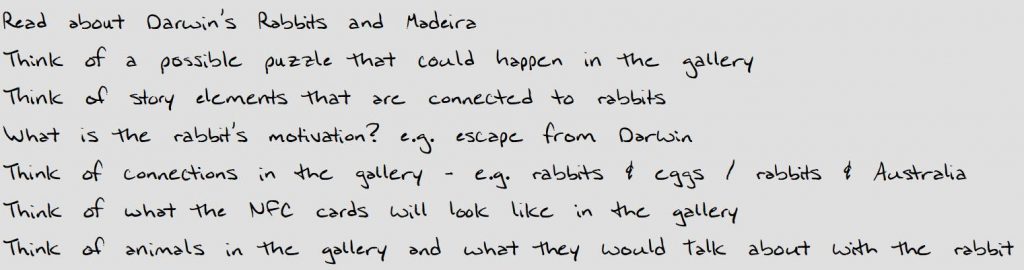 Read about Darwin's Rabbits and Madeira
Think of a possible puzzle that could happen in the gallery
Think of story elements that are connected to rabbits
What is the rabbit's motivation? e.g. escape from Darwin
Think of connections in the gallery - e.g. rabbits & eggs / rabbits & Australia
Think of what the NFC cards will look like in the gallery
Think of animals in the gallery and what they would talk about with the rabbit